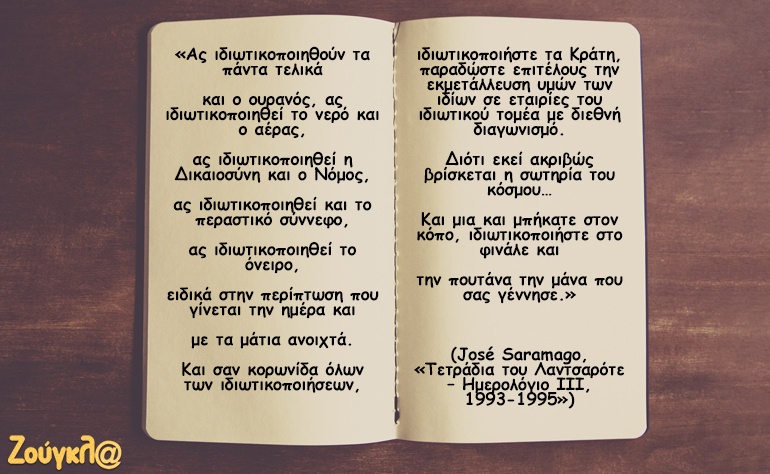 «Ας ιδιωτικοποιηθούν τα
πάντα τελικά
και ο ουρανός, ας
ιδιωτικοποιηθεί το νερό και
ο αέρας,
ας ιδιωτικοποιηθεί η
Δικαιοσύνη και ο Νόμος,
ας ιδιωτικοποιηθεί και το
περαστικό σύννεφο,
ας ιδιωτικοποιηθεί το
όνειρο,
ειδικά στην περίπτωση που
γίνεται την ημέρα και
με τα μάτια ανοιχτά.
Και σαν κορωνίδα όλων
των ιδιωτικοποιήσεων,
ιδιωτικοποιήστε τα Κράτη,
παραδώστε επιτέλους την
εκμετάλλευση υμών των
ιδίων σε εταιρίες του
ιδιωτικού τομέα με διεθνή
διαγωνισμό.
Διότι εκεί ακριβώς
βρίσκεται η σωτηρία του
κόσμου…
Και μια και μπήκατε στον
κόπο, ιδιωτικοποιήστε στο
φινάλε και
την πουτάνα την μάνα που
σας γέννησε.»
(José Saramago,
«Τετράδια του Λαντσαρότε
– Ημερολόγιο ΙΙΙ,
1993-1995»)
Ζούγκλ@